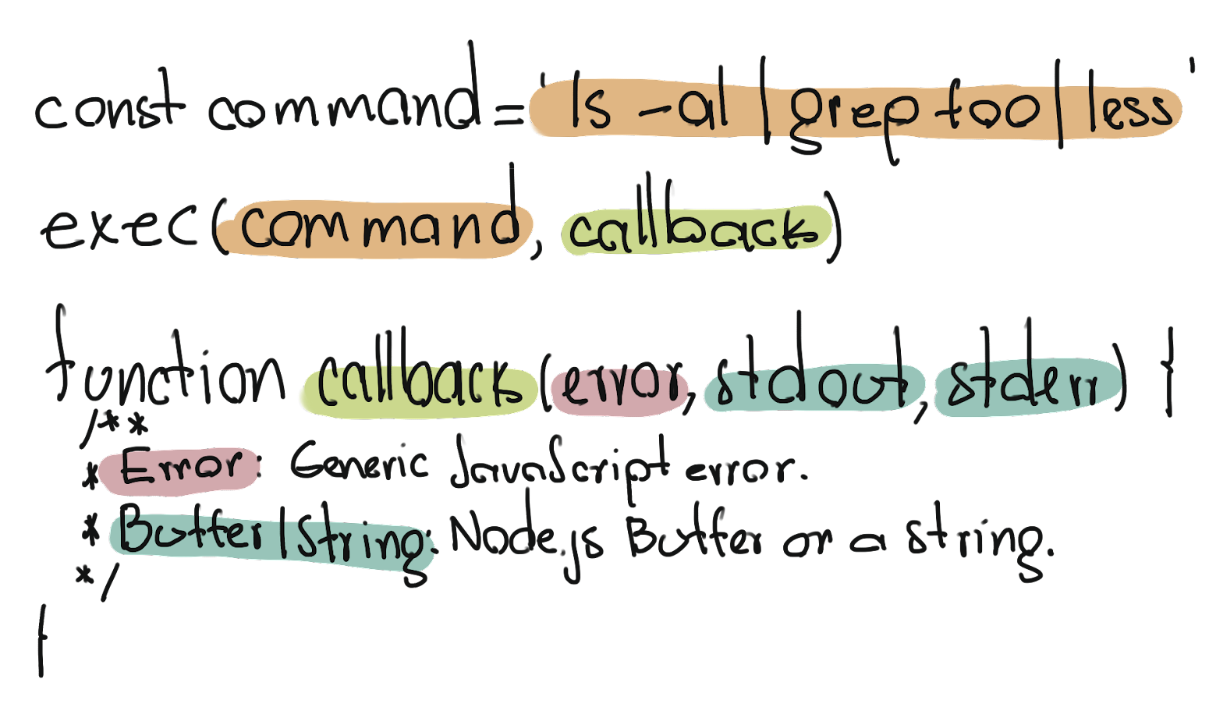 const command = 'ls -al | grep foo | less'
exec(command, callback)
function callback(error, stdout, stderr) {
/**
* Error: Generic JavaScript error.
* Buffer|String: Node.js Buffer or a string.
*/
}